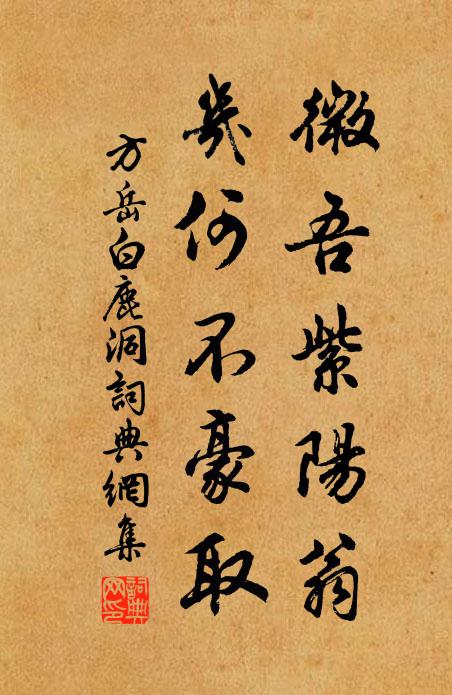 微吾紫陽翁
幾何不豪取
方岳白鹿洞詞典網集
詞典網印